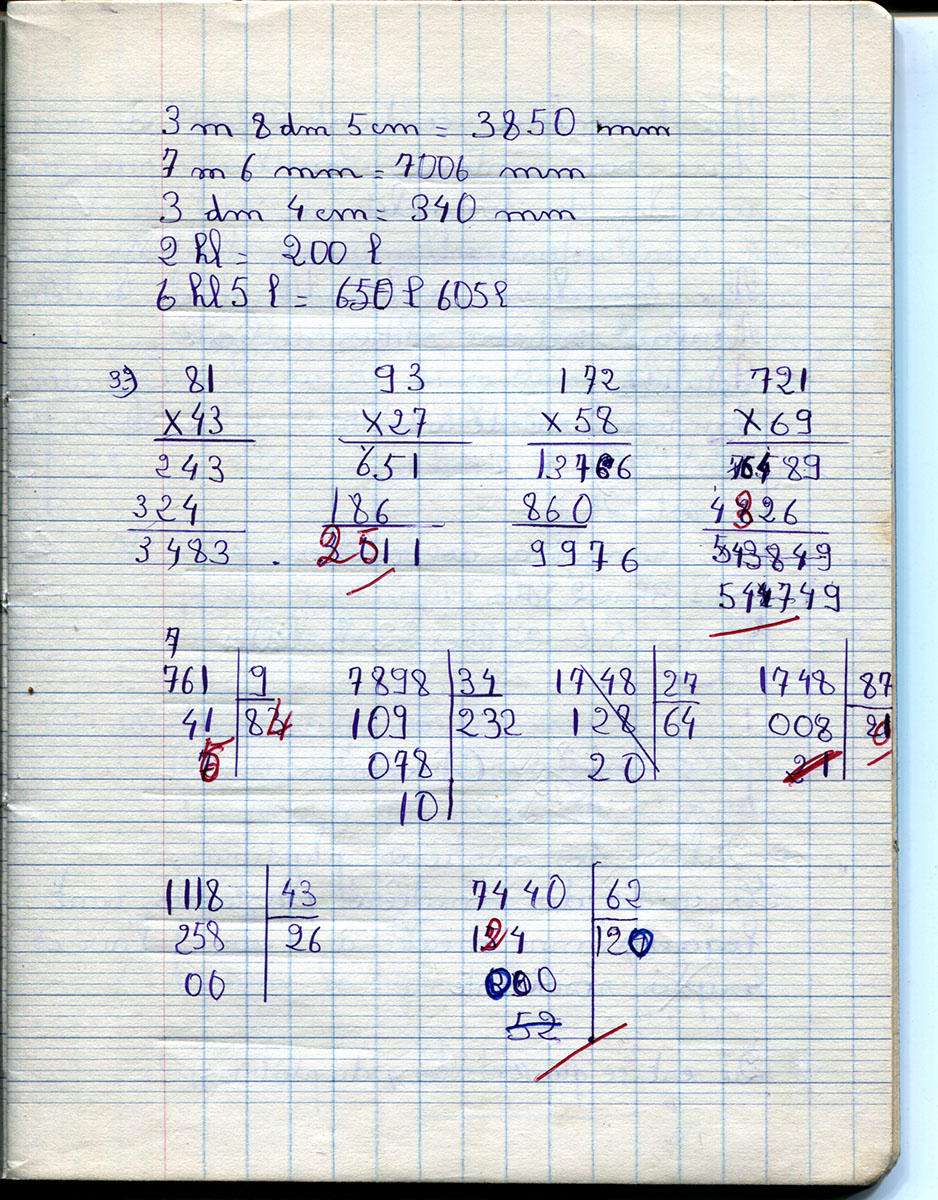 3 m 8 dm 5 cm = 3850 mm
7 m 6 mm = 7006 mm
3 dm 4 cm = 340 mm
2 hl = 200 l
6 hl 5 l = 650 l 605 l
3°) 81 93 172 721
×43 ×27 ×58 ×69
243 651 1376 6489
324 186 860 4326
3483 2511 9976 543849
544749
7
761 9 7898 34 1748 27 1748 87
41 84 109 232 128 64 008 20
5 078 20 21
10
1118 43 7440 62
258 26 124 120
00 000
52